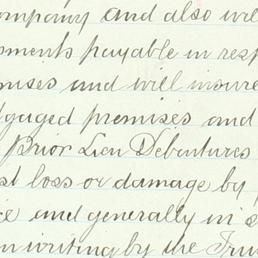 ompany and also wil
pments payable in resp
mises and will insure
tgaged premises and
Prior Lien Debentures
st loss or damage by
ce and generally in s
on writing by the Trus